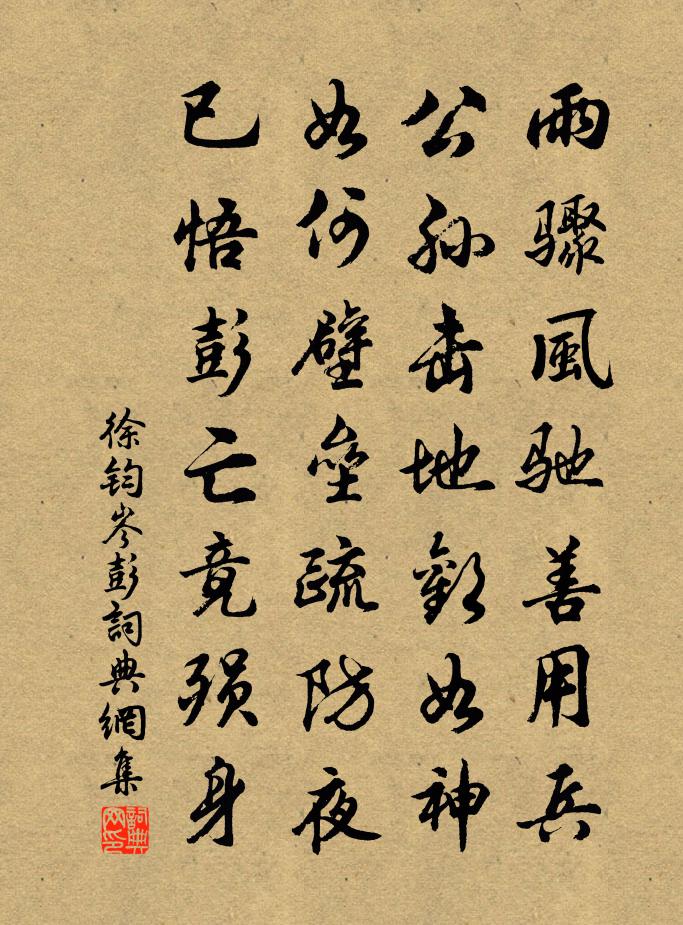 雨驟風馳善用兵
公孫击地歎如神
如何壁壘疏防夜
已悟彭亡竟殞身
徐鈞岑彭詞典網集
詞典网印